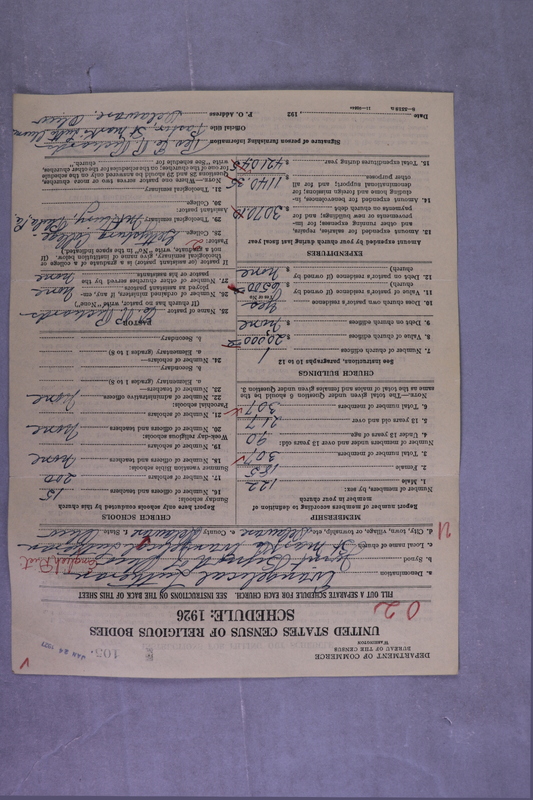 DEPARTMENT OF COMMERCE
BUREAU OF THE CENSUS
WASHINGTON
103.
JAN 26 1927
UNITED STATES CENSUS OF RELIGIOUS BODIES
SCHEDULE: 1926
02
FILL OUT A SEPARATE SCHEDULE FOR EACH CHURCH. READ THE INSTRUCTIONS ON THE BACK OF THIS SHEET
a. Denomination Evangelical Lutheran
b. Synod Ohio
c. Local name of church St Mark's Evangelical Lutheran
d. City, town, village, or township, etc. Delaware e. County Delaware f. State Ohio
MEMBERSHIP
Report number of members according to definition of member in your church
Number of members, by sex:
1. Male 122
2. Female 185
3. Total number of members 307
Number of members under and over 13 years old:
4. Under 13 years of age 90
5. 13 years old and over 217
6. Total number of members 307
NOTE.—The total given under Question 6 should be the same as the total of males and females given under Question 3.
CHURCH BUILDINGS
See instructions, paragraphs 10 to 12
7. Number of church edifices 1
8. Value of church edifices $ 20,000
9. Debt on church edifices $ none
10. Does church own pastor's residence yes
(Yes or No)
11. Value of pastor's residence (if owned by church) $ 6500
12. Debt on pastor's residence (if owned by church) $ none
EXPENDITURES
Amount expended by your church during last fiscal year
13. Amount expended for salaries, repairs, and other running expenses; for improvements or new buildings; and for payments on church debt $ 3070.10
14. Amount expended for benevolence, including home and foreign missions; for denominational support; and for all other purposes $ 1140.35
15. Total expenditures during year $ 4210.45
CHURCH SCHOOLS
Report here only schools conducted by this church
Sunday schools:
16. Number of officers and teachers 15
17. Number of scholars 200
Summer vacation Bible schools:
18. Number of officers and teachers none
19. Number of scholars
Week-day religious schools:
20. Number of officers and teachers none
21. Number of scholars
Parochial schools:
22. Number of administrative officers none
23. Number of teachers—
a. Elementary (grades 1 to 8)
b. Secondary
24. Number of scholars—
a. Elementary (grades 1 to 8)
b. Secondary
PASTORS
25. Name of pastor
(If church has no pastor, write "None")
26. Number of ordained ministers, if any, employed as assistant pastors none
27. Number of other churches served by the pastor or his assistants. none
If pastor or assistant pastor is a graduate of a college or theological seminary, give name of institution below. (If not a graduate, write "No" in the space indicated)
Pastor:
28. College Gettysburg College
29. Theological seminary
Assistant pastor:
30. College
31. Theological seminary
Signature of person furnishing information
Official title Pastor St Mark's Luth Church
P. O. Address Delaware, Ohio
Date 192